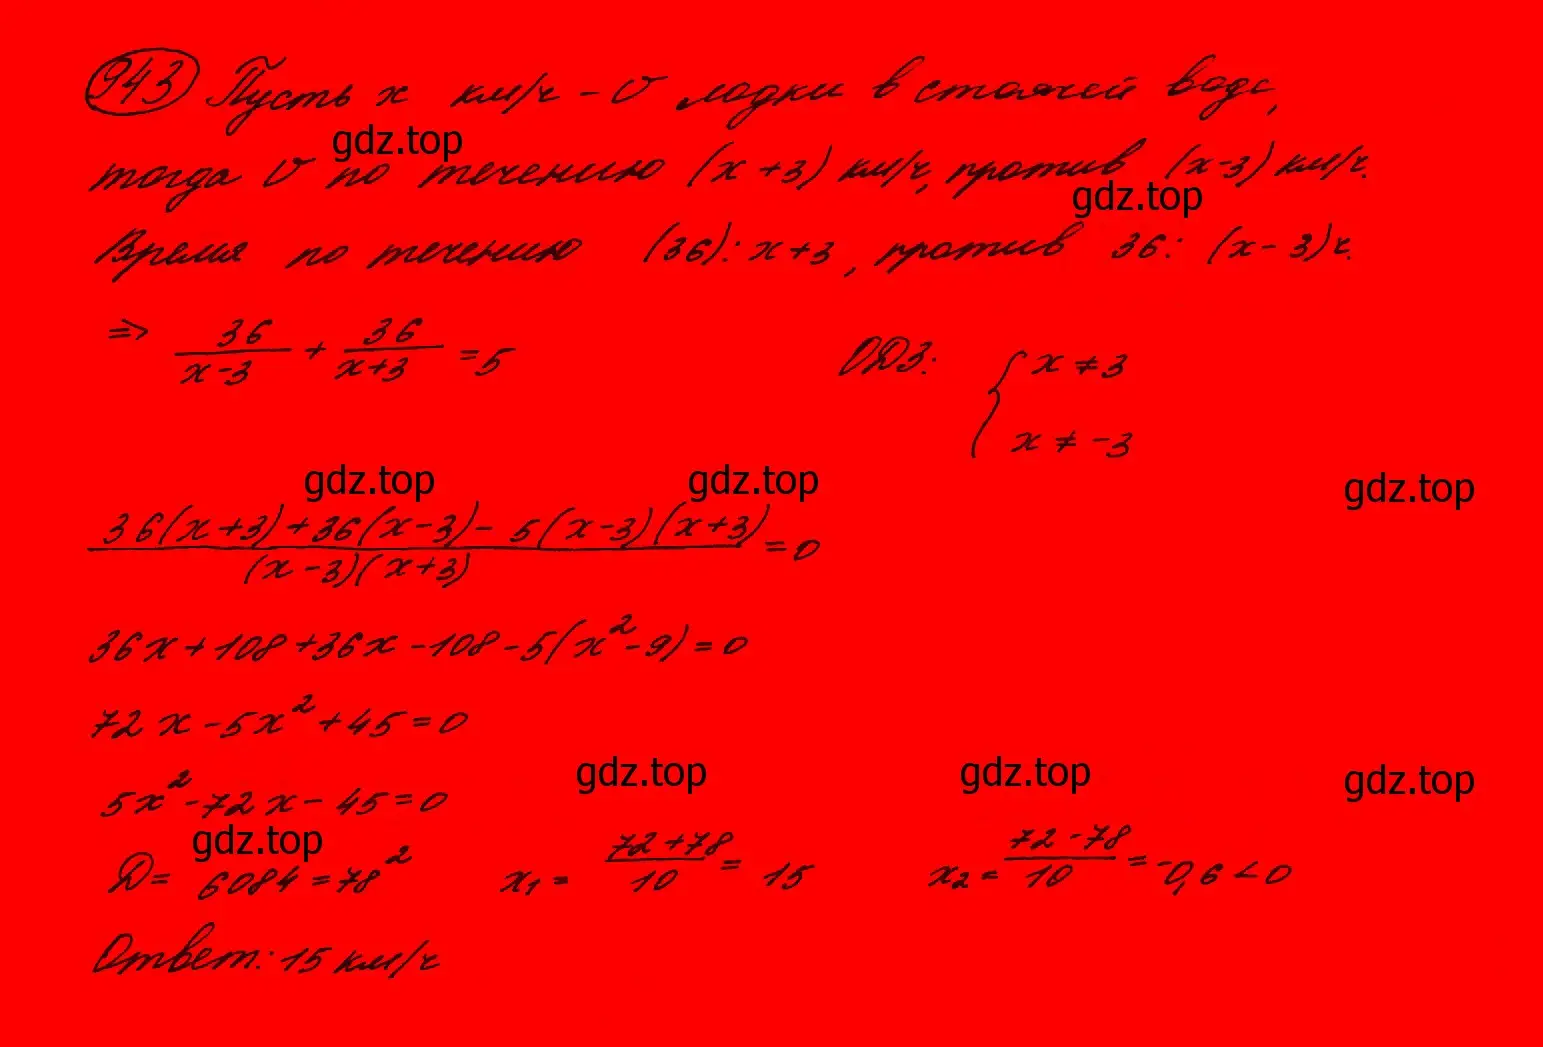 943 Пусть x км/ч - v лодки в стоячей воде,
gdz.top
тогда v по течению (x+3) км/ч, против (x-3) км/ч.
gdz.top
Время по течению (36): x+3, против 36: (x-3) ч.
=> 36/(x-3) + 36/(x+3) = 5 ОДЗ: { x ≠ 3
x ≠ -3
gdz.top gdz.top gdz.top
(36(x+3)+36(x-3)- 5(x-3)(x+3))/((x-3)(x+3)) = 0
36x+108+36x-108-5(x²-9)=0
72x-5x²+45=0
gdz.top gdz.top gdz.top
5x²-72x-45=0
gdz.top
D= 6084=78² x₁ = (72+78)/10 = 15 x₂ = (72-78)/10 = -0,6<0
Ответ: 15 км/ч